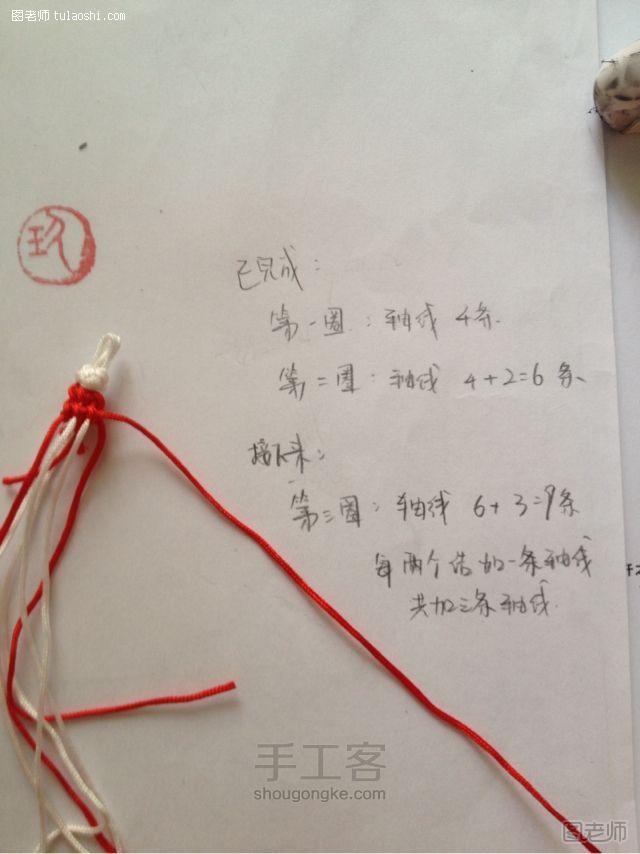 图老师 tulaoshi.com
玖
已完成：
第一圈：轴线 4条
第二圈：轴线 4+2=6条
接下来：
第三圈：轴线 6+3=9条
每两个结加一条轴线
共加三条轴线
手工客
shougongke.com
图老师